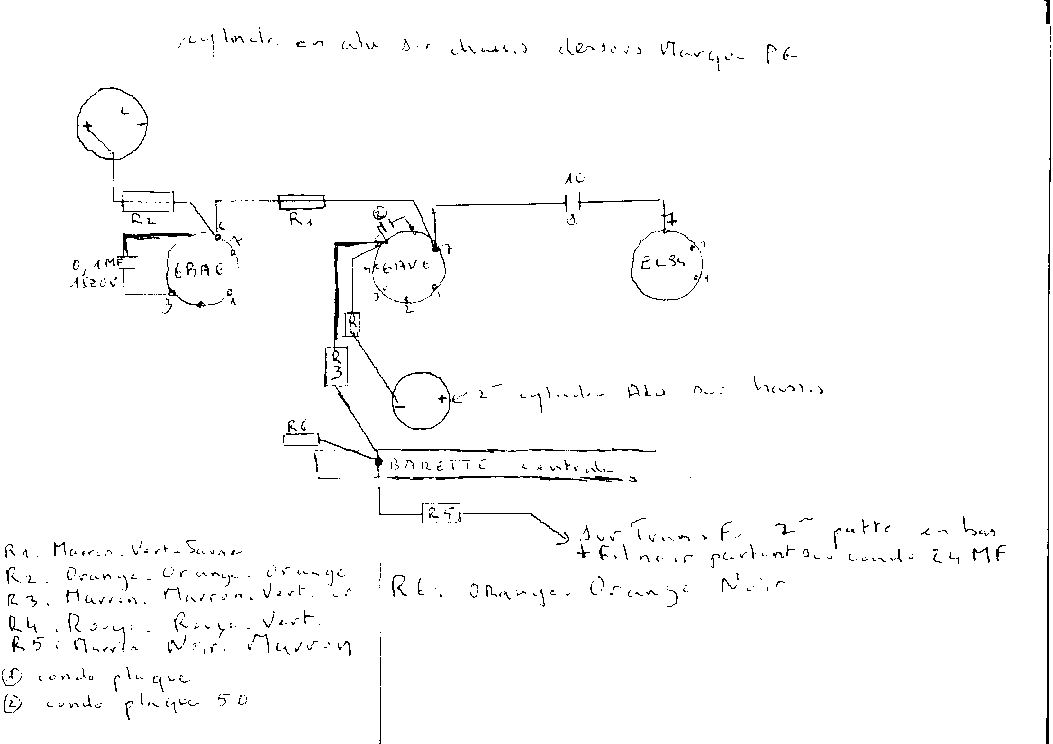 cylindre en alu sur chassis dessous Marque PE
L
+
-
R2
R1
10
2
6
7
1
0,1MF
1520V
3
EBAE
4
EAVE
7
3
2
1
EL84
7
1
R
R
3
-
+
2- cylindre Alu sur chassis
R6
BARETTE centrale
R5
sur Transfo 2- patte en bas
+ Fil noir partant sur condo 24 MF
R1. Marron. Vert. Jaune
R2. Orange. Orange. Orange
R3. Marron. Marron. Vert. or
R4. Rouge. Rouge. Vert.
R5. Marron Noir. Marron
R6. Orange. Orange Noir
① condo plaque
② condo plaque 50